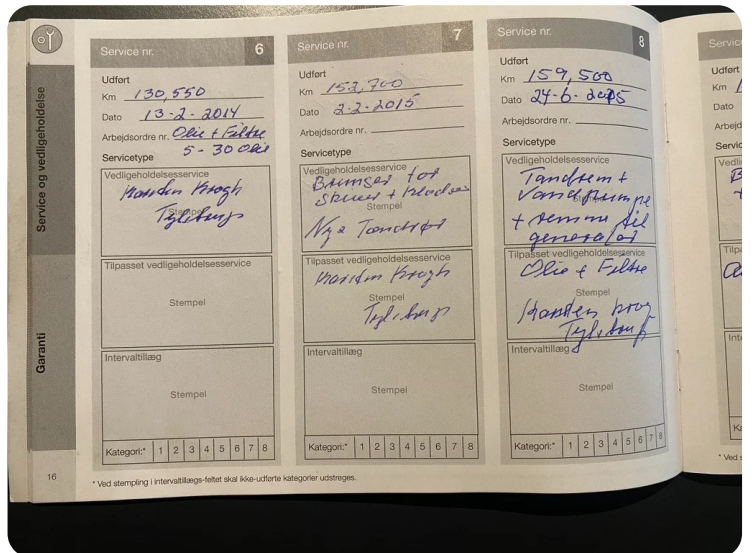 Service og vedligeholdelse
Garanti
16
Service nr. 6
Udført
Km 130,550
Dato 13-2-2014
Arbejdsordre nr. Olie + Filtre
5-30 Olie
Servicetype
Vedligeholdelsesservice
Karsten Krogh
Stempel
Tilpasset vedligeholdelsesservice
Stempel
Intervaltillæg
Stempel
Kategori:* 1 2 3 4 5 6 7 8
Service nr. 7
Udført
Km 152,700
Dato 2-2-2015
Arbejdsordre nr.
Servicetype
Vedligeholdelsesservice
Bremser for
Skiver + Klodser
Stempel
Nye Tændrør
Tilpasset vedligeholdelsesservice
Karsten Krogh
Stempel
Intervaltillæg
Stempel
Kategori:* 1 2 3 4 5 6 7 8
Service nr. 8
Udført
Km 159,500
Dato 24-6-2015
Arbejdsordre nr.
Servicetype
Vedligeholdelsesservice
Tandrem +
Vandpumpe
Stempel
+ remme til
generator
Tilpasset vedligeholdelsesservice
Olie + Filtre
Stempel
Karsten Krog
Intervaltillæg
Stempel
Kategori:* 1 2 3 4 5 6 7 8
* Ved stempling i intervaltillægs-feltet skal ikke-udførte kategorier udstreges.